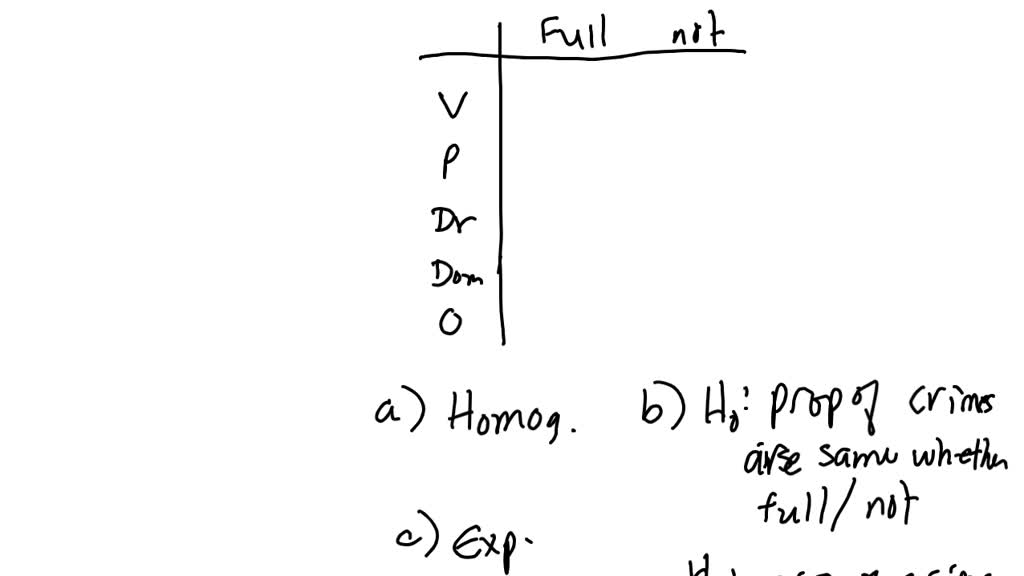 Full not
V
P
Dr
Dom
O
a) Homog. b) H₀: prop of crimes
are same whether
full/not
c) Exp.